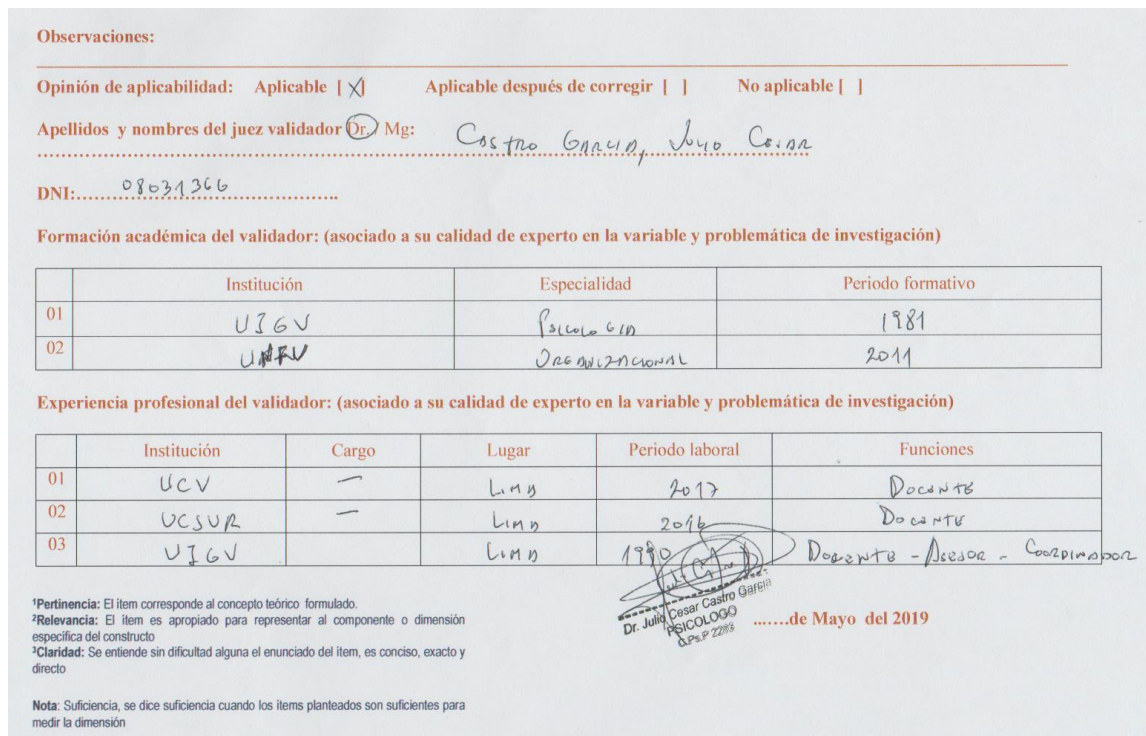 Observaciones:
Opinión de aplicabilidad: Aplicable [X] Aplicable después de corregir [ ] No aplicable [ ]
Apellidos y nombres del juez validador Dr. / Mg: Castro Garcia, Julio Cesar
DNI:........08031366........
Formación académica del validador: (asociado a su calidad de experto en la variable y problemática de investigación)
Institución Especialidad Periodo formativo
01 UIGV Psicologia 1981
02 ORGANIZACIONAL 2011
Experiencia profesional del validador: (asociado a su calidad de experto en la variable y problemática de investigación)
Institución Cargo Lugar Periodo laboral Funciones
01 UCV — Lima 2017 Docente
02 UCSUR — Lima 2016 Docente
03 UIGV Lima 1990 Docente - Asesor - Coordinador
Dr. Julio Cesar Castro Garcia
PSICOLOGO
C.Ps.P 2283
.......de Mayo del 2019
¹Pertinencia: El ítem corresponde al concepto teórico formulado.
²Relevancia: El ítem es apropiado para representar al componente o dimensión
específica del constructo
³Claridad: Se entiende sin dificultad alguna el enunciado del ítem, es conciso, exacto y
directo
Nota: Suficiencia, se dice suficiencia cuando los ítems planteados son suficientes para
medir la dimensión